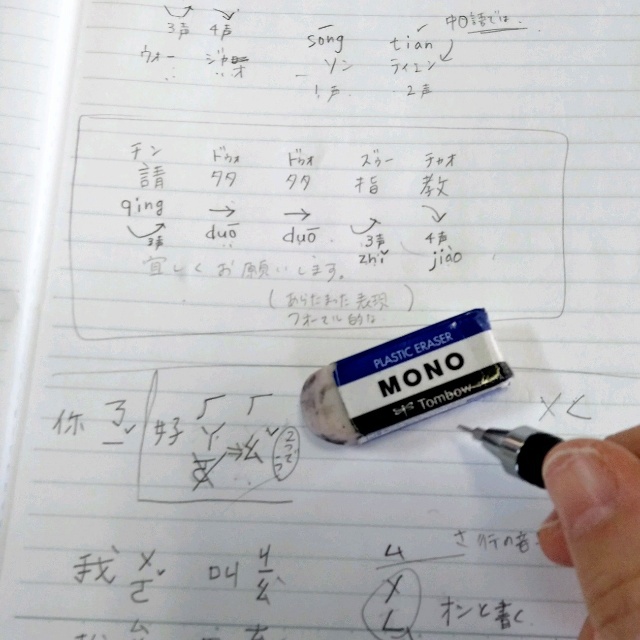 3声 4声 sōng tian 中国語では
ウォー ソン ティエン
1声 2声
チン ドゥオ ドゥオ ズゥー チャオ
請 多 多 指 教
qing → →
3声 duō duō 3声 4声
zhǐ jiào
宜しくお願いします。
(あらたまった表現)
フォーマル的な
PLASTIC ERASER
MONO
Tombow
你 ㄋㄧˇ 好 ㄏ ㄏ
ㄚ ㄠˇ
我 ㄨㄛˇ 叫 ㄐㄧㄠˋ
さ行の音
オンと書く